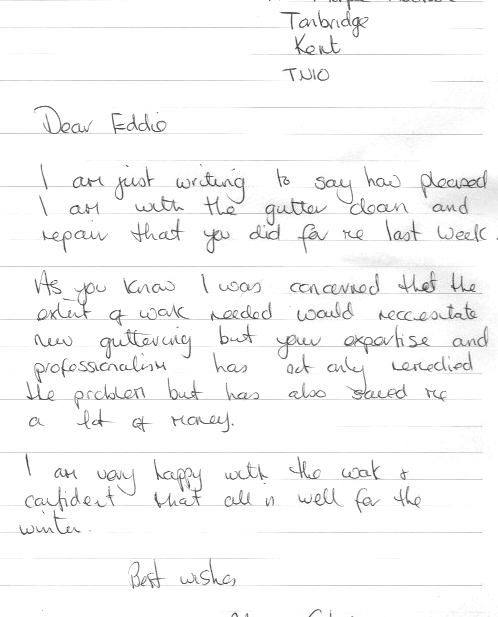 Tonbridge
Kent
TN10
Dear Eddie
I am just writing to say how pleased
I am with the gutter clean and
repair that you did for me last week.
As you know I was concerned that the
extent of work needed would neccesitate
new guttering but your expertise and
professionalism has not only remedied
the problem but has also saved me
a lot of money.
I am very happy with the work &
confident that all is well for the
winter.
Best wishes